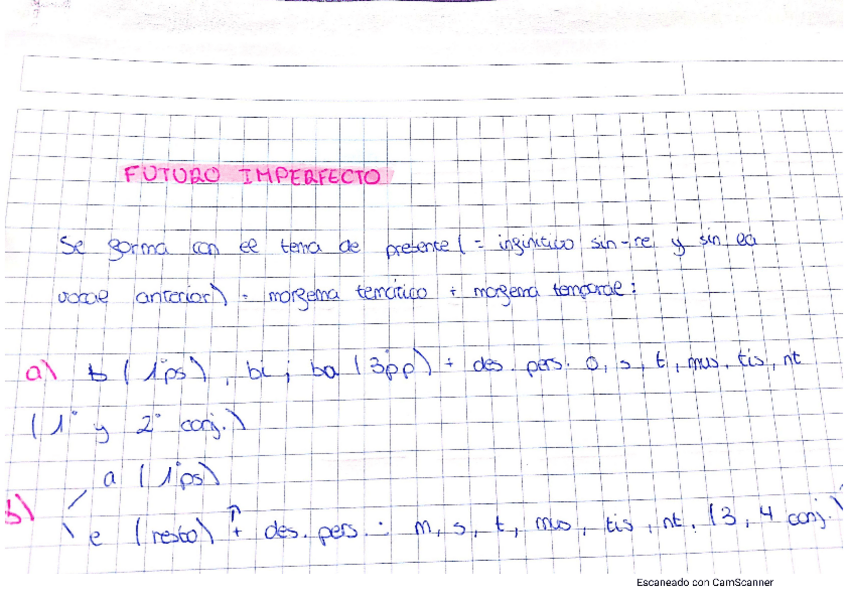 FUTURO IMPERFECTO
Se forma con el tema de presente (= infinitivo sin -re y sin la
vocal anterior) + morfema temático + morfema temporal:
a) b (1ªps), bi, ba (3ªpp) + des. pers. o, s, t, mus, tis, nt
(1ª y 2ª conj.)
a (1ªps)
b) e (resto) + des. pers.: m, s, t, mus, tis, nt. (3, 4 conj.)
Escaneado con CamScanner